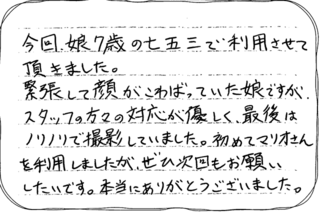 今回、娘7歳の七五三で利用させて
頂きました。
緊張して顔がこわばっていた娘ですが、
スタッフの方々の対応が優しく、最後は
ノリノリで撮影していました。初めてマリオさん
を利用しましたが、ぜひ次回もお願い
したいです。本当にありがとうございました。